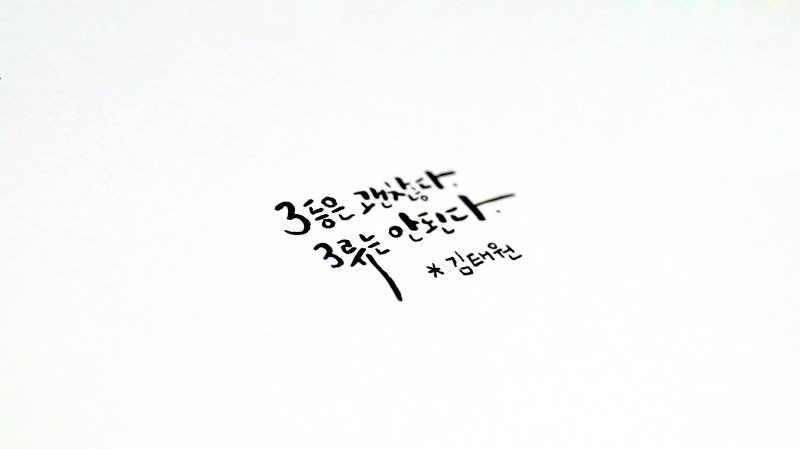 3등은 괜찮다.
3류는 안된다.
* 김태원